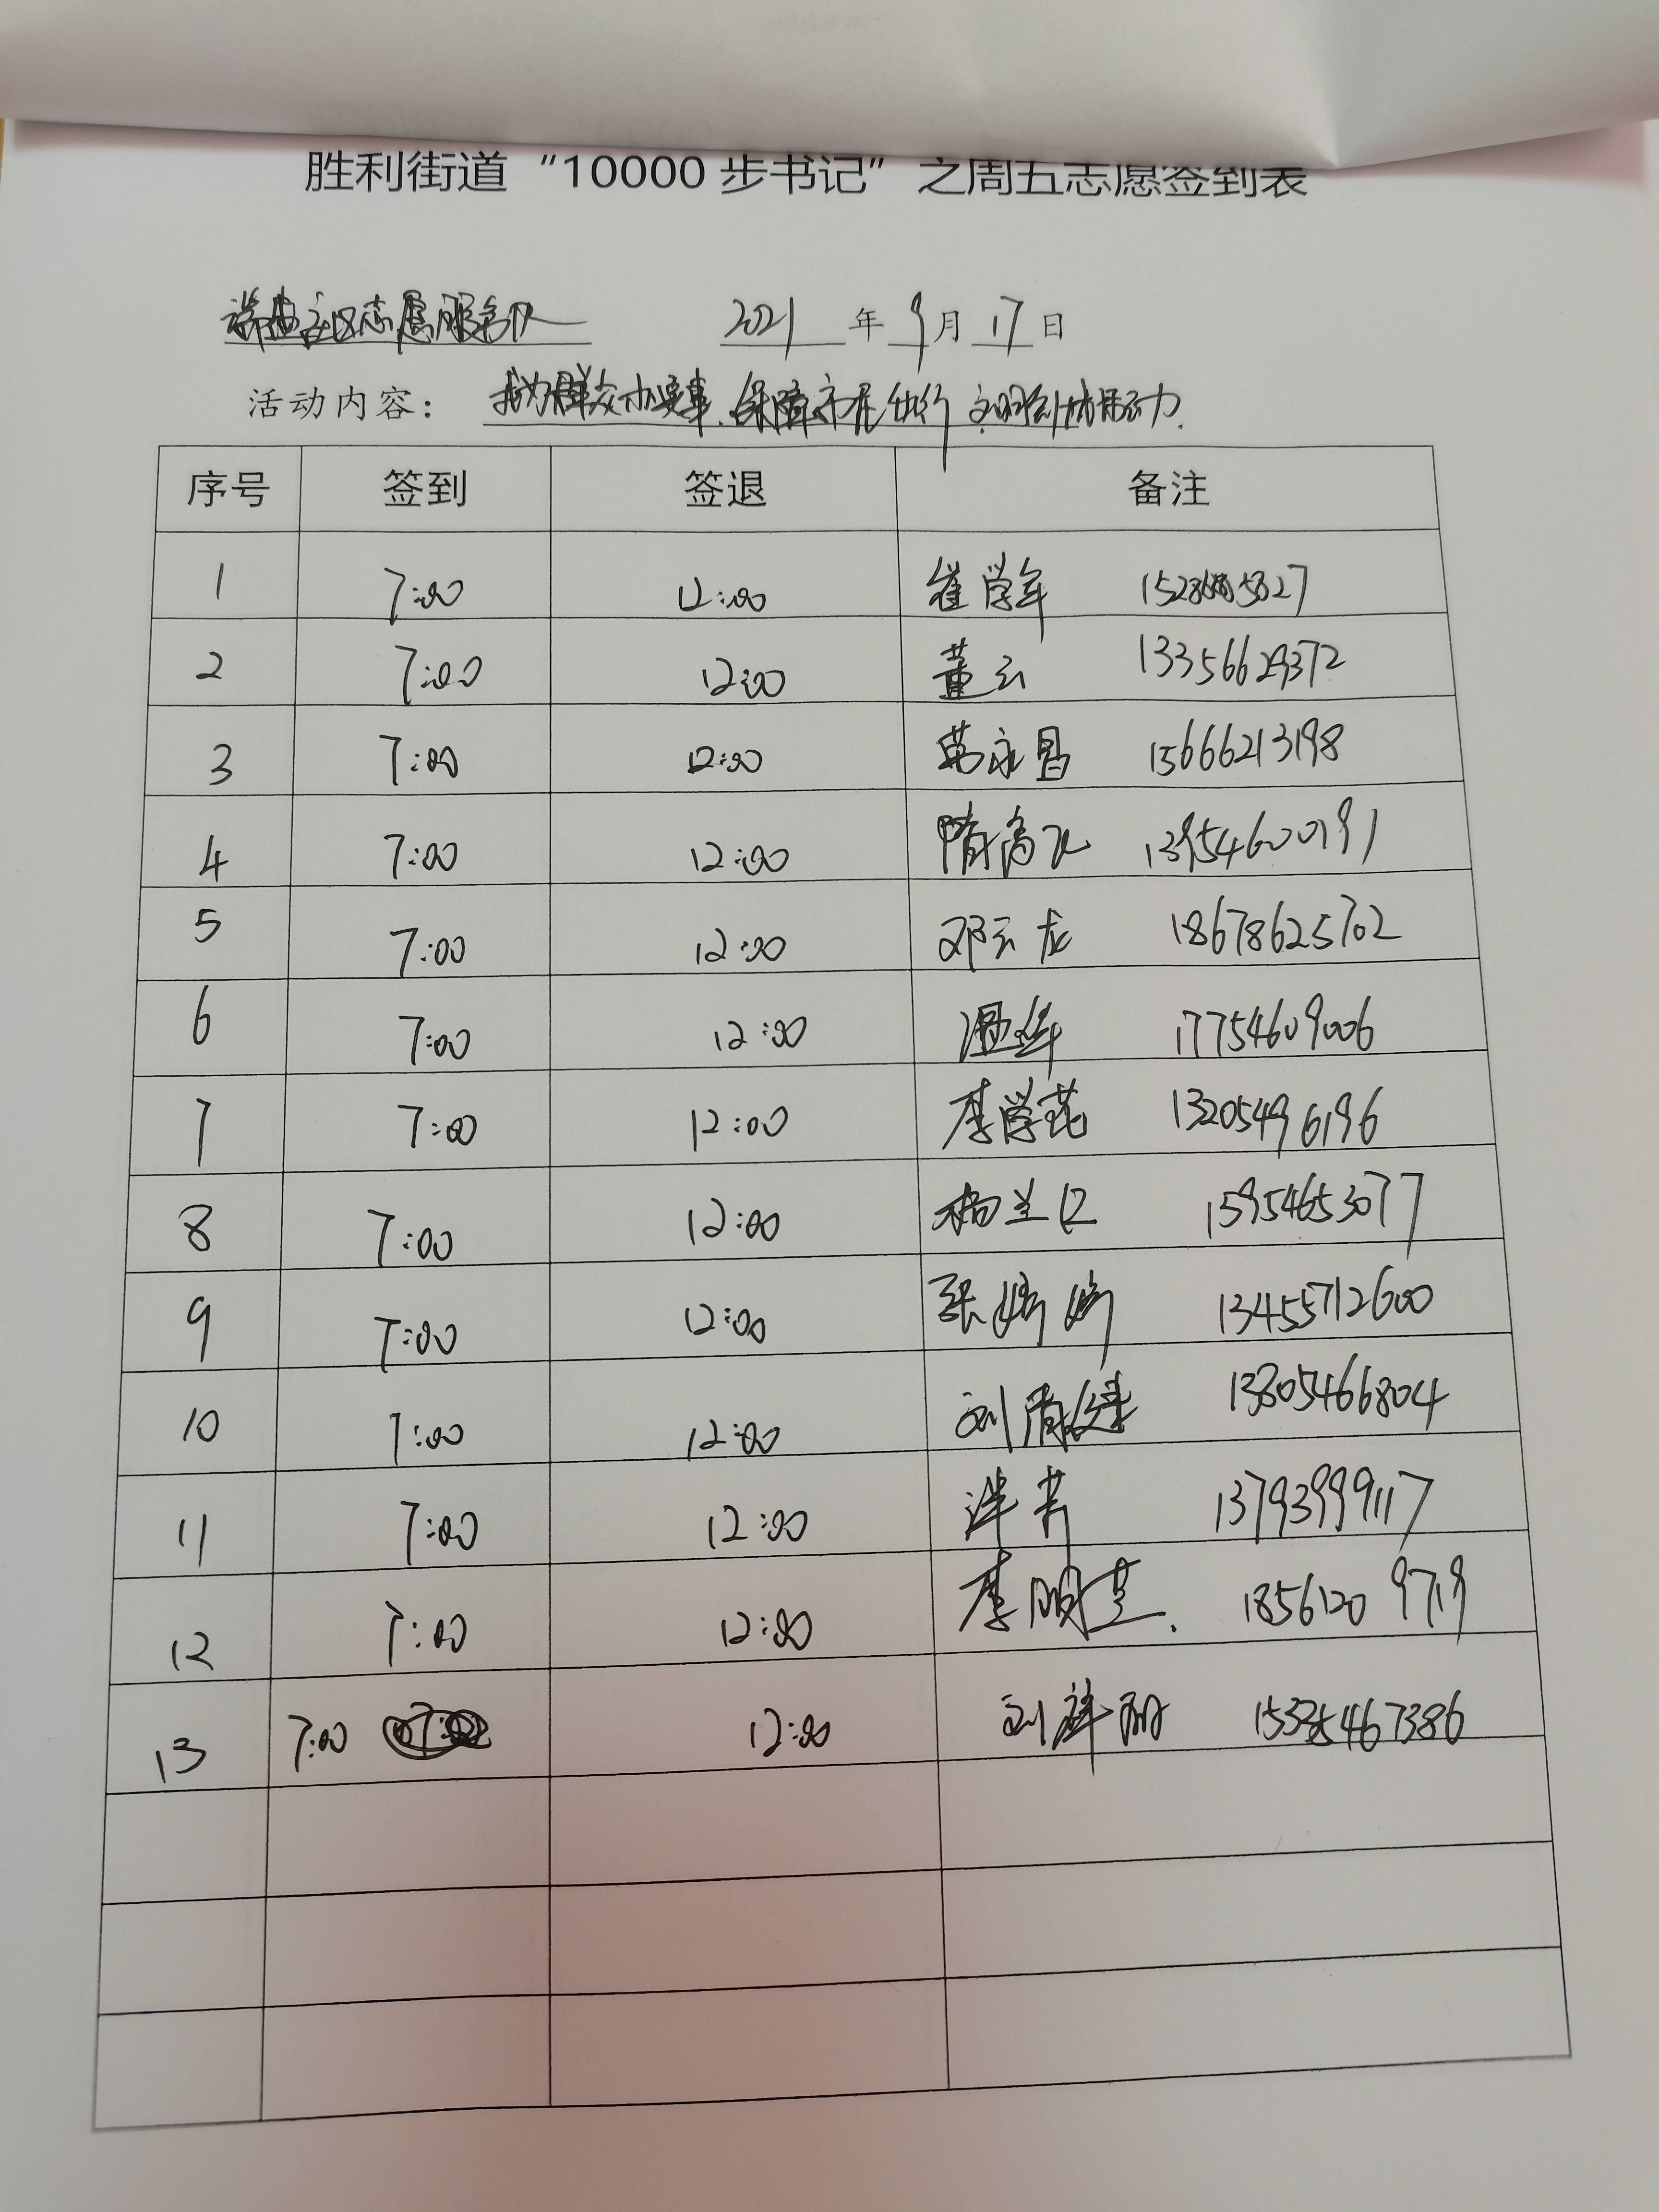 胜利街道“10000步书记”之周五志愿签到表
社区志愿服务队 2021年9月17日
活动内容：我为群众办实事、保障市民出行 文明创城
序号 签到 签退 备注
1 7:00 12:00 崔学军
2 7:00 12:00 董云 13356629372
3 7:00 12:00 永昌 15666213198
4 7:00 12:00 隋高飞 13954600191
5 7:00 12:00 邓云龙 18678625702
6 7:00 12:00 温华 17754609006
7 7:00 12:00 李学花 13205496196
8 7:00 12:00 杨兰 15954653077
9 7:00 12:00 张娇娇 13455712600
10 7:00 12:00 刘 13805466804
11 7:00 12:00 13793999117
12 7:00 12:00 李明芝 18561209719
13 7:00 12:00 刘祥丽 467386